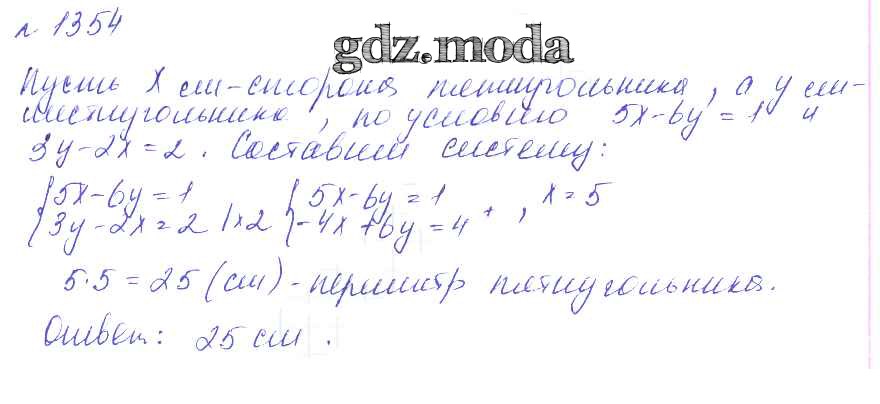 № 1354
gdz.moda
Пусть x см-сторона пятиугольника, а y см-
шестиугольника, по условию 5x-6y=1 и
3y-2x=2. Составим систему:
{5x-6y=1 {5x-6y=1 , x=5
{3y-2x=2 |x2 {-4x+6y=4 +
5·5=25(см)-периметр пятиугольника.
Ответ: 25 см.